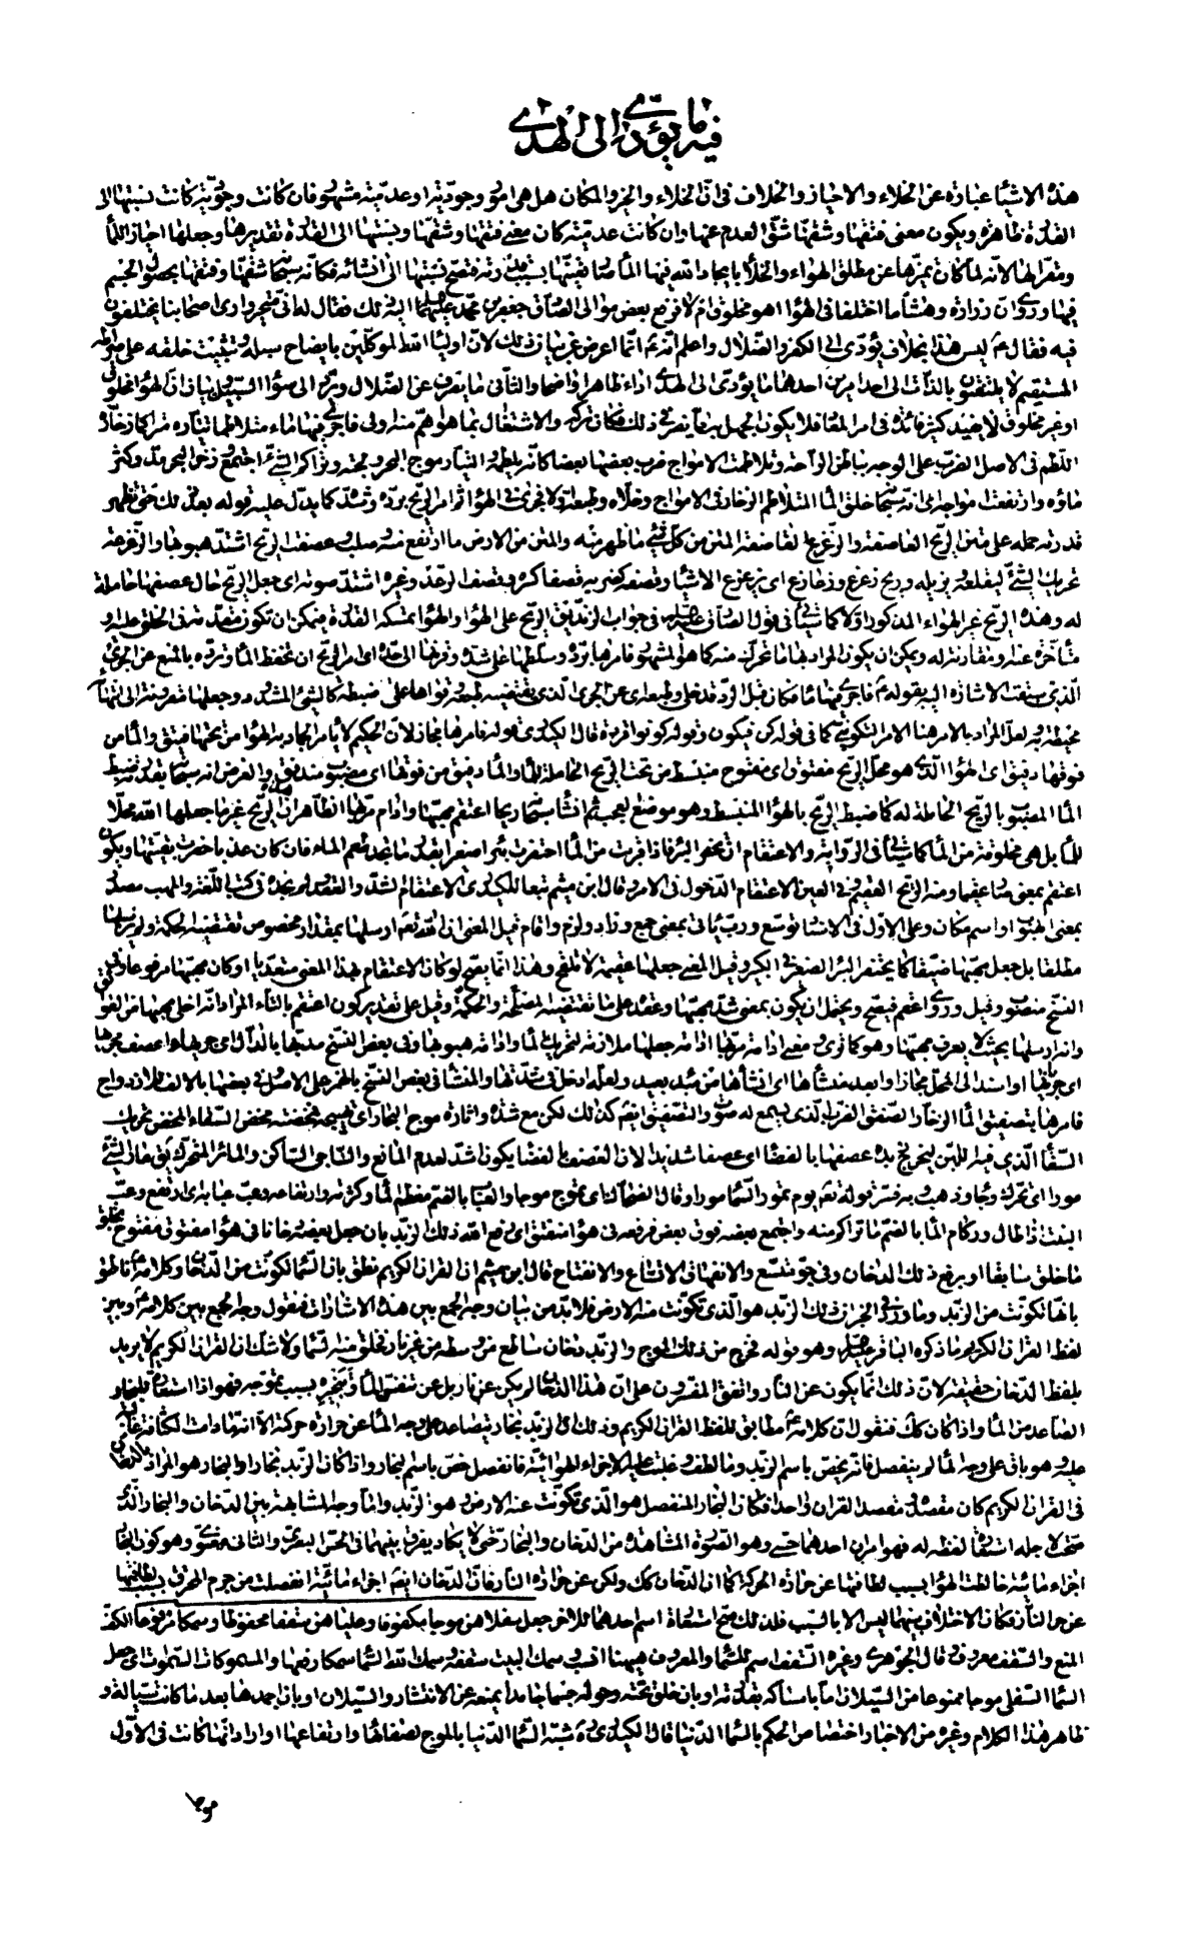 فيه ما يؤدّي الى الهدى
هذه الاشياء عبارة عن الخلاء والاحياز والخلاف فى انّ الخلاء والحيز والمكان هل هى امور وجوديّة او عدميّة مشهور فان كانت وجوديّة كانت نسبتها الى
القدرة ظاهرة ويكون معنى فتقها وشقّها شقّ العدم عنها وان كانت عدميّة كان معنى فتقها وشقّها ونسبتها الى القدرة تقديرها وجعلها احيازا للماء
ومقرّا لها لانّه لمّا كان تميّزها عن مطلق الهواء والخلاء بايجاد الله فيها الماء صار تعيّنها بسبب قدرته فتصحّ نسبتها الى انشائه فكانّه سبحانه شقّها وفتقها بحصول الجسم
فيها وروى ان زرارة وهشاما اختلفا فى الهواء اهو مخلوق ام لا فرفع بعض موالى الصادق جعفر بن محمد عليهما السلام اليه ذلك فقال له انى متحير وارى اصحابنا يختلفون
فيه فقال ع ليس هذا بخلاف يؤدّى الى الكفر والضلال واعلم انّه ع انّما اعرض عن بيان ذلك لانّ اولياء الله الموكّلين بايضاح سبله وتثبيت خلقه على صراطه
المستقيم لا يلتفتون بالذات الى احد امرين احدهما ما يؤدى الى الهدى اداء ظاهرا واضحا والثانى ما يصرف عن الضلال ويردّ الى سواء السبيل وبيان ان الهواء مخلوق
او غير مخلوق لا يفيد كثير فائدة فى امر المعاد فلا يكون الجهل به مما يضرّ فى ذلك فكان تركه والاشتغال بما هو اهم منه اولى فاجرى فيها ماء متلاطما تيّاره متراكما زخّاره
اللّطم فى الاصل الضرب على الوجه بباطن الراحة وتلاطمت الامواج ضرب بعضها بعضا كانّه يلطمه والتيّار موج البحر ولجته وتراكم الشئ اجتمع وزخر البحر مدّ وكثر
ماؤه وارتفعت امواجه اى انه سبحانه خلق الماء المتلاطم الزخار فى الامواج وخلاه وطبعه اولا فجرى فى الهواء ثم امر الريح بردّه وشدّه كما يدلّ عليه قوله بعد ذلك حتى تظهر
قدرته حمله على متن الريح العاصفة والزعزع القاصفة المتن من كل شئ ما ظهر منه والمتن من الارض ما ارتفع منه وصلب وعصفت الريح اشتدّ هبوبها والزعزعة
تحريك الشئ ليقلعه ويزيله وريح زعزع وزعازع اى يزعزع الاشياء وقصفه كضربه قصفا كسره وقصف الرعد وغيره اشتدّ صوته اى جعل الريح حال عصفها حاملة
له وهذه الريح غير الهواء المذكور اولا كما سيأتى فى قول الصادق عليه السلام فى جواب الزنديق الريح على الهواء والهواء تمسكه القدرة فيمكن ان تكون مقدّمة فى الخلق عليه او
متأخرة عنه ومقارنة له ويمكن ان يكون المراد بها ما تحرّك منه كما هو المشهور فامرها بردّه وسلّطها على شدّه وقرنها الى حدّه اى امر الريح ان تحفظ الماء وتردّه بالمنع عن الجرى
الّذى سبقت الاشارة اليه بقوله ع فاجرى فيها ماء فكان قبل الردّ قد خلى وطبعه اى عن الجرى الّذى يقتضيه طبعه وقواها على ضبطه كالشئ المشدود وجعلها مقرونة الى انتهائه
محيطة به ولعل المراد بالامر هنا الامر التكوينى كما فى قوله كن فيكون وقوله كونوا قردة قال الكيدرى قوله فامرها مجاز لانّ الحكيم لا يأمر الجماد به الهواء من تحتها فتيق والماء من
فوقها دفيق اى الهواء الّذى هو محلّ الريح مفتوق اى مفتوح منبسط من تحت الريح الحاملة للماء والماء دفيق من فوقها اى مصبوب مندفق والغرض انه سبحانه بقدرته ضبط
الماء المصبوب بالريح الحاملة له كما ضبط الريح بالهواء المنبسط وهو موضع العجب ثم انشأ سبحانه ريحا اعتقم مهبّها وادام مربّها الظاهر ان الريح غير ما جعلها الله محلّا
للماء بل هى مخلوقة من الماء كما سيأتى فى الرواية والاعتقام ان تحفر البئر فاذا قربت من الماء احتفرت بئرا صغيرا بقدر ما تجد طعم الماء فان كان عذبا حفرت بقيّتها ويكون
اعتقم بمعنى صار عقيما ومنه الريح العقيم وفى العين الاعتقام الدخول فى الامر وقال ابن ميثم تبعا للكيدرى الاعتقام الشدّ والعقد ولم نجده فى كتب اللّغة والمهب مصدر
بمعنى الهبوب او اسم مكان وعلى الاوّل فى الاسناد توسّع وربّ يأتى بمعنى جمع وزاد ولزم واقام قيل المعنى ان الله تعه ارسلها بمقدار مخصوص تقتضيه الحكمة ولم يرسلها
مطلقا بل جعل مهبّها ضيّقا كما يحتفر البئر الصغير فى الكبير وقيل المعنى جعلها عقيمة لا تلقح وهذا انما يصحّ لو كان الاعتقام بهذا المعنى متعدّيا او كان مهبّها مرفوعا وفى
النسخ منصوب وقيل وروى اعقم فيصحّ ويحتمل ان يكون بمعنى شدّ مهبّها وعقده على ما تقتضيه المصلحة والحكمة وقيل على تقدير كون اعتقم بالتاء المراد انه اخلى مهبها من العوائق
وانه ارسلها بحيث لا يعرف مهبّها وهو كما ترى ومعنى ادامة مربّها ادامة جعلها ملازمة لتحريك الماء وادامة هبوبها وفى بعض النسخ مدبّها بالدال اى جريها واعصف مجراها
اى جريانها او اسند الى المحلّ مجازا وابعد منشأها اى انشأها من مبدء بعيد ولعلّه ادخل فى شدّتها والمنشأ فى بعض النسخ بالهمز على الاصل وفى بعضها بالالف للازدواج
فامرها بتصفيق الماء الزخار الصفق الضرب الّذى يسمع له صوت والتصفيق ايضا كذلك لكن مع شدّة واثارة موج البحار اى تهييجه فمخضته مخض السقاء المخض تحريك
السّقاء الّذى فيه اللبن ليخرج زبده وعصفها بالفضاء اى عصفا شديدا لان العصف بالفضاء يكون اشدّ لعدم المانع والساجى الساكن والمائر المتحرّك يق مار الشئ
مورا اى تحرّك وجاء وذهب وبه فسّر قوله تعه يوم تمور السّماء مورا وقال الضحاك اى تموج موجا والعباب بالضم معظم الماء وكثرته وارتفاعه وعبّ عبابه اى ارتفع وعبّ
النبت اذا طال وركام الماء بالضم ما تراكم منه واجتمع بعضه فوق بعض فرفعه فى هواء منفتق اى رفع الله ذلك الزبد بان جعل بعضه دخانا فى هواء مفتوق مفتوح بخلق
ما خلق سابقا او برفع ذلك الدخان وفى جوّ متّسع والانفهاق الاتساع والانفتاح قال ابن ميثم ان القران الكريم نطق بان السّماء تكوّنت من الدّخان وكلامه ع ناطق
بانّها تكوّنت من الزبد وما ورد فى الخبر ان ذلك الزبد هو الّذى تكوّنت منه الارض فلا بد من بيان وجه الجمع بين هذه الاشارات فنقول وجه الجمع بين كلامه ع وبين
لفظ القران الكريم ما ذكره الباقر عليه السلام وهو قوله فخرج من ذلك الموج والزبد دخان ساطع من وسطه من غير نار فخلق منه السّماء ولا شك ان القران الكريم لا يريد
بلفظ الدّخان حقيقته لان ذلك انّما يكون عن النار واتفق المفسّرون على انّ هذا الدخان لم يكن عن نار بل عن تنفّس الماء وتبخيره بسبب تموّجه فهو اذا استعارة للبخار
الصاعد من الماء واذا كان كك فنقول ان كلامه ع مطابق للفظ القران الكريم وذلك ان الزبد بخار يتصاعد على وجه الماء عن حرارة حركته الّا انّه ما دامت الكثافة غالبة
عليه وهو باق على وجه الماء لم ينفصل فانه يخص باسم الزبد وما لطف وغلبت عليه الاجزاء الهوائيّة فانفصل خصّ باسم البخار واذا كان الزبد بخارا والبخار هو المراد بالدخان
فى القران الكريم كان مقصده ومقصد القران واحدا فكان البخار المنفصل هو الّذى تكوّنت عنه الارض وهو الزبد وامّا وجه المشابهة بين الدّخان والبخار الّذى
صحّت لاجله استعارة لفظه له فهو امران احدهما حسّى وهو الصورة المشاهدة من الدّخان والبخار حتى لا يكاد يفرق بينهما فى الحس البصرى والثانى معنوى وهو كون البخار
اجزاء مائيّة خالطت الهواء بسبب لطافتها عن حرارة الحركة كما ان الدّخان كك ولكن عن حرارة النار فان الدّخان ايضا اجزاء مائيّة انفصلت من جرم المحترق بسبب لطافتها
عن حرّ النار فكان الاختلاف بينهما ليس الا بالسّبب فلذلك صحّ استعارة اسم احدهما للاخر جعل سفلاهن موجا مكفوفا وعلياهن سقفا محفوظا وسمكا مرفوعا الكفّ
المنع والسّقف معروف قال الجوهرى وغيره السّقف اسم للسّماء والمعروف هيهنا انسب وسمك البيت سقفه وسمك الله السّماء سمكا رفعها والمسموكات السّموات اى جعل
السّماء السّفلى موجا ممنوعا من السّيلان اما بامساكه بقدرته او بان خلق تحته وحوله جسما جامدا يمنعه عن الانتشار والسّيلان او بان اجمدها بعد ما كانت سيّالة و
ظاهر هذا الكلام وغيره من الاخبار اختصاص الحكم بالسّماء الدّنيا قال الكيدرى ره شبّه السّماء الدّنيا بالموج لصفائها وارتفاعها او اراد انّها كانت فى الاوّل
موجا